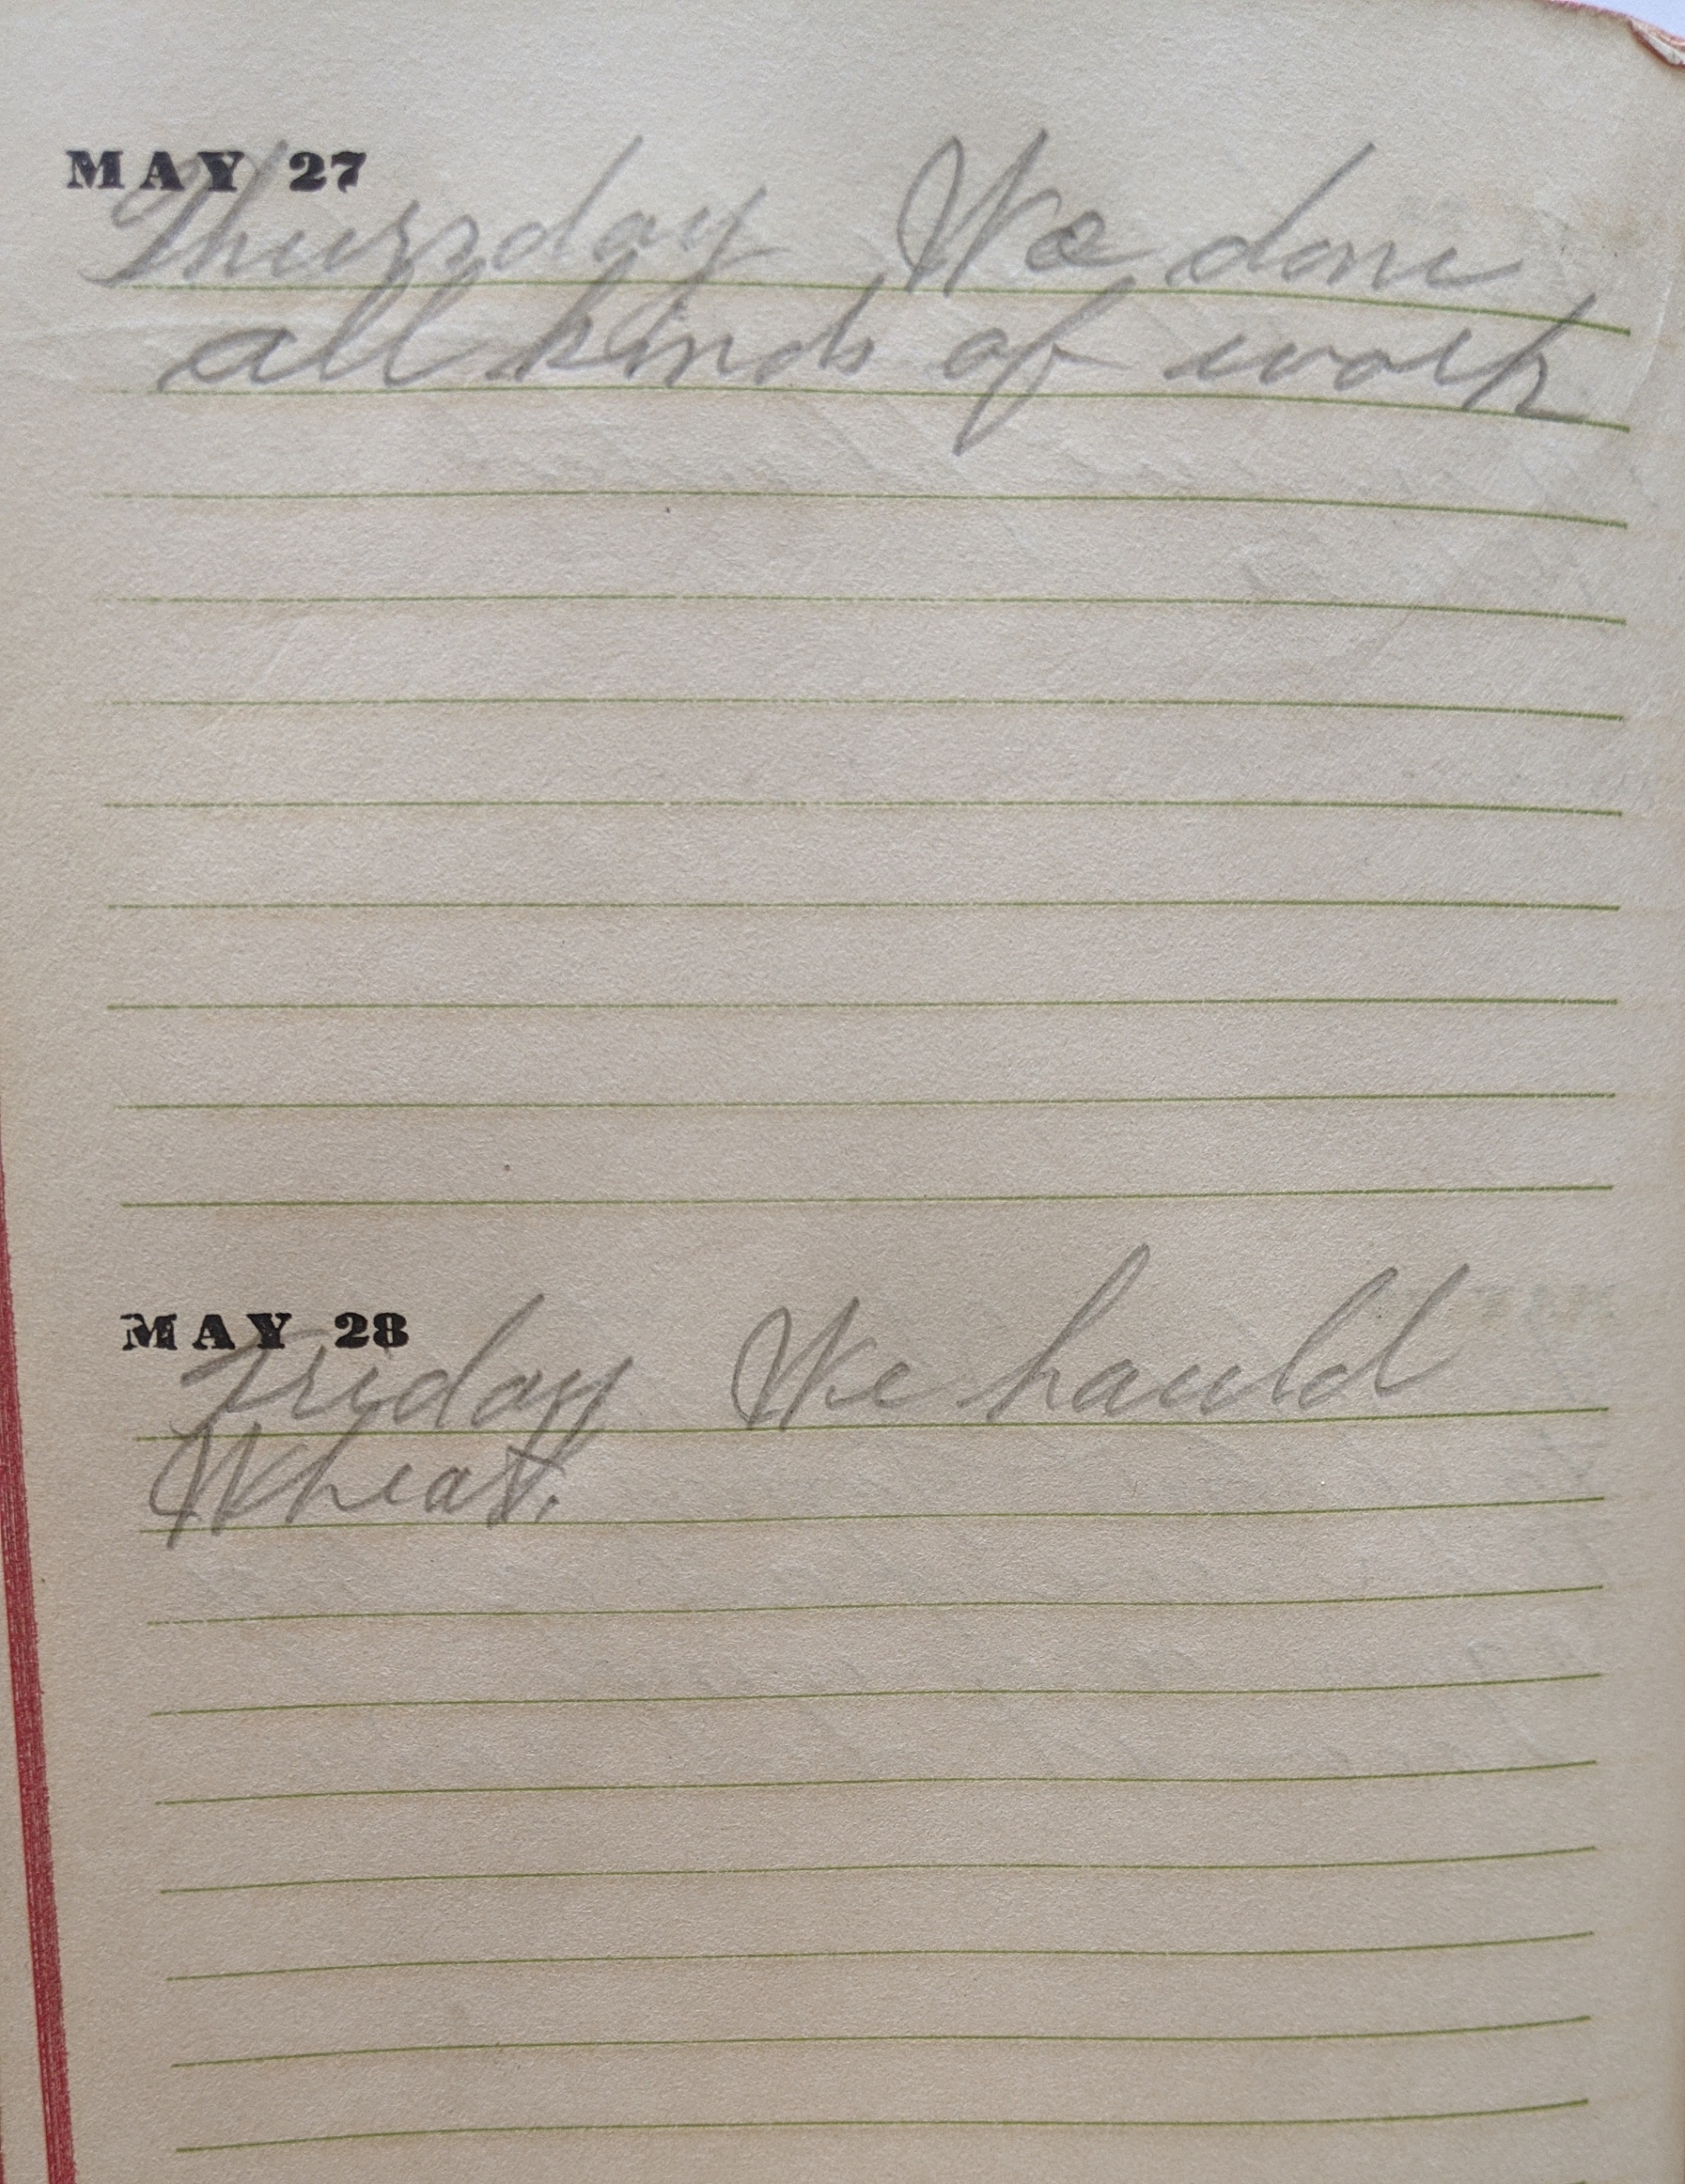 MAY 27
Thursday We done
all kinds of work
MAY 28
Friday We hauld
Wheat.